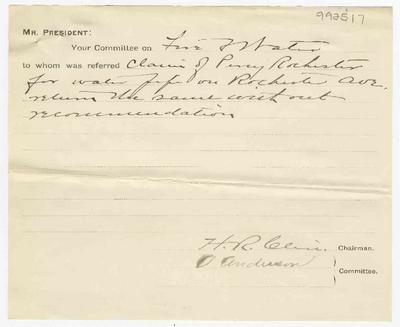 992517
MR. PRESIDENT:
Your Committee on Fire & Water
to whom was referred Claim of Percy Rochester
for water pipe on Rochester Ave.
return the same without
recommendation
H. R. Chairman.
O Anderson
Committee.